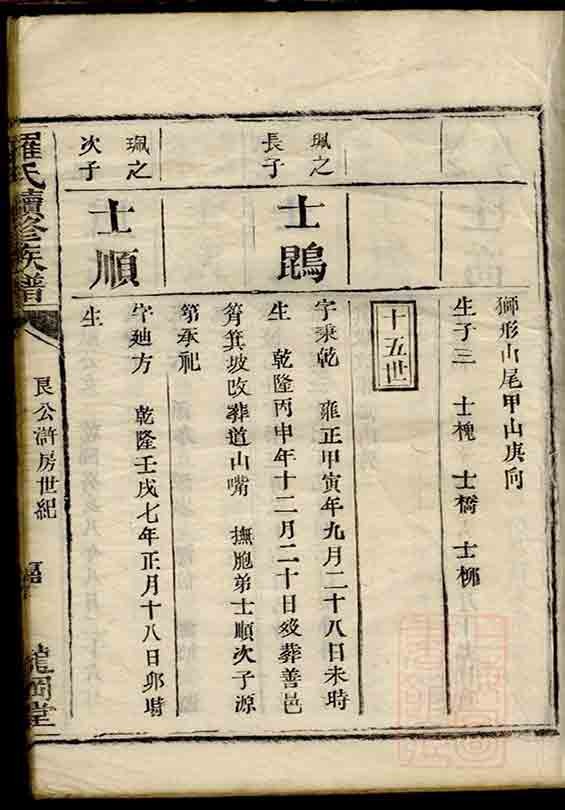 獅形山尾甲山庚向
生子三 士槐 士橋 士柳
十五世
珮之長子
士鵾
字秉乾 雍正甲寅年九月二十八日未時
生 乾隆丙申年十二月二十日歿葬善邑
筲箕坡改葬道山嘴 撫胞弟士順次子源
第承祀
珮之次子
士順
字廸方 乾隆壬戌七年正月十八日卯時
生
羅氏續修族譜
良公滸房世紀
龍岡堂